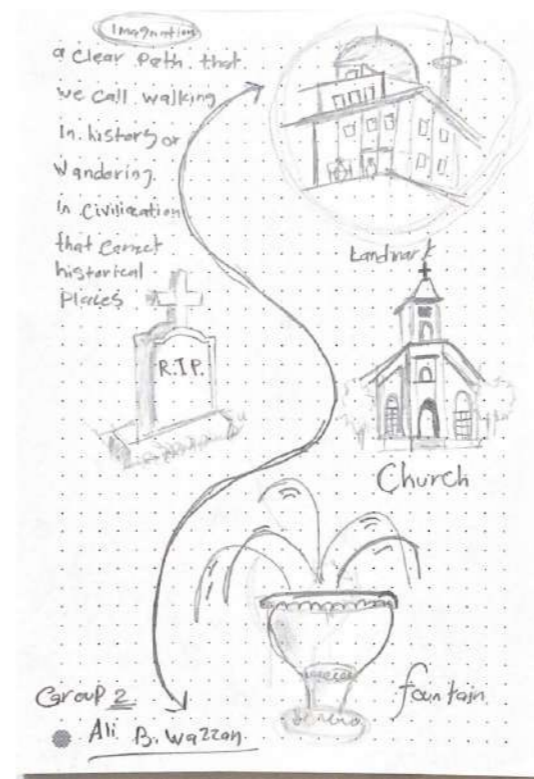 Imagnation
a clear path that
we call walking
In history or
Wandering
in civilization
that connect
historical
places
R.I.P.
Landmark
Church
fountain
Group 2
Ali B. Wazzan